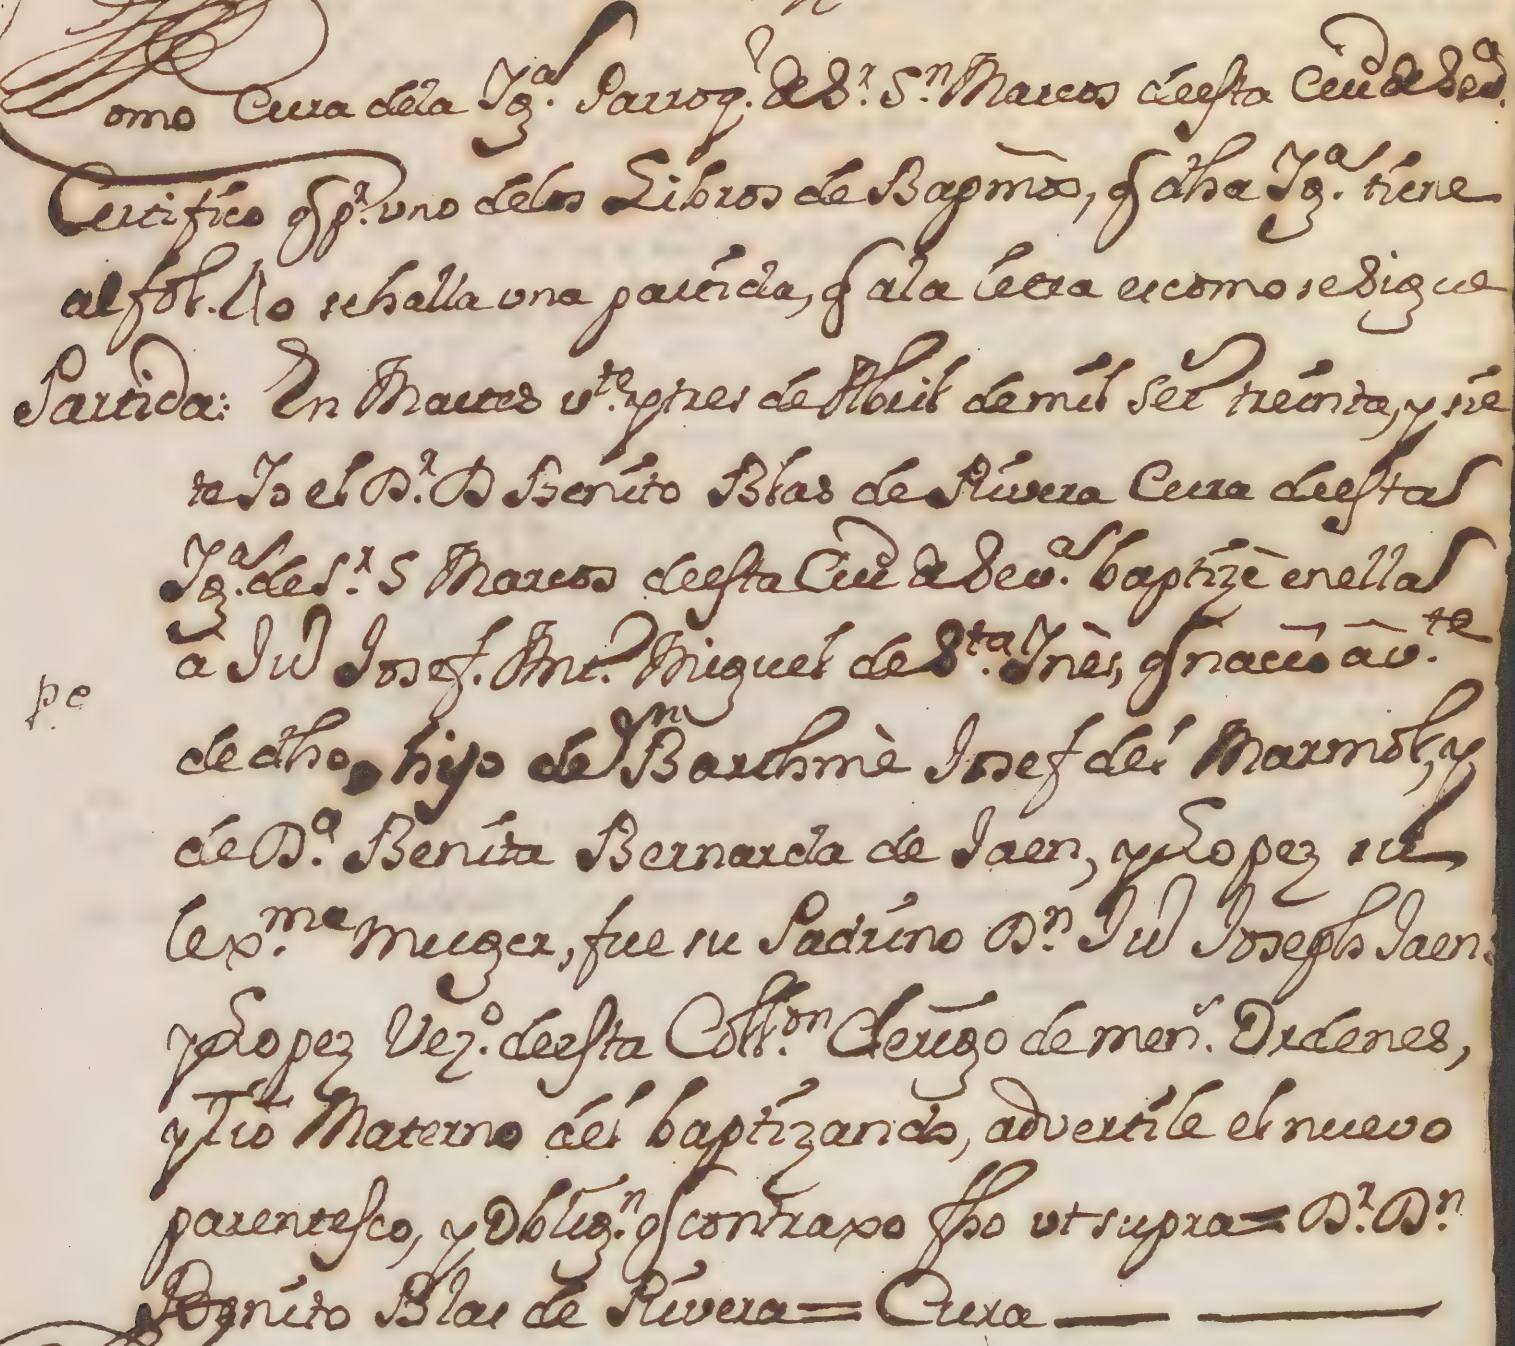 omo Cura dela Yg.ª Parroq.l de S.r S.n Marcos deesta Ciud de Sev.ª
Certifico q p.r uno delos Libros de Bapmos, q dha Yg.ª tiene
al fol. se halla una partida, q ala letra es como se Sigue
Partida: En Martes v.te y tres de Abril de mil Set.s treinta, y sie
te Yo el D.r D Benito Blas de Rivera Cura deesta
Yg.ª de S.r S Marcos deesta Ciud de Sev.ª baptizè en ella
a Ju Josef. Ant.º Miguel de S.ta Ynès, q naciò à v.te
de dho, hijo de D.n Barthmè Josef del Marmol, y
de D.ª Benita Bernarda de Jaen, y Lopez su
lex.ma muger, fue su Padrino D.n Ju Joseph Jaen
y Lopez Vez.º deesta Coll.on Clerigo de men.s Ordenes,
y tio Materno del baptizando, advertile el nuevo
parentesco, y Oblig.n q contraxo fho ut supra = D.r D.n
Benito Blas de Rivera = Cura
pe